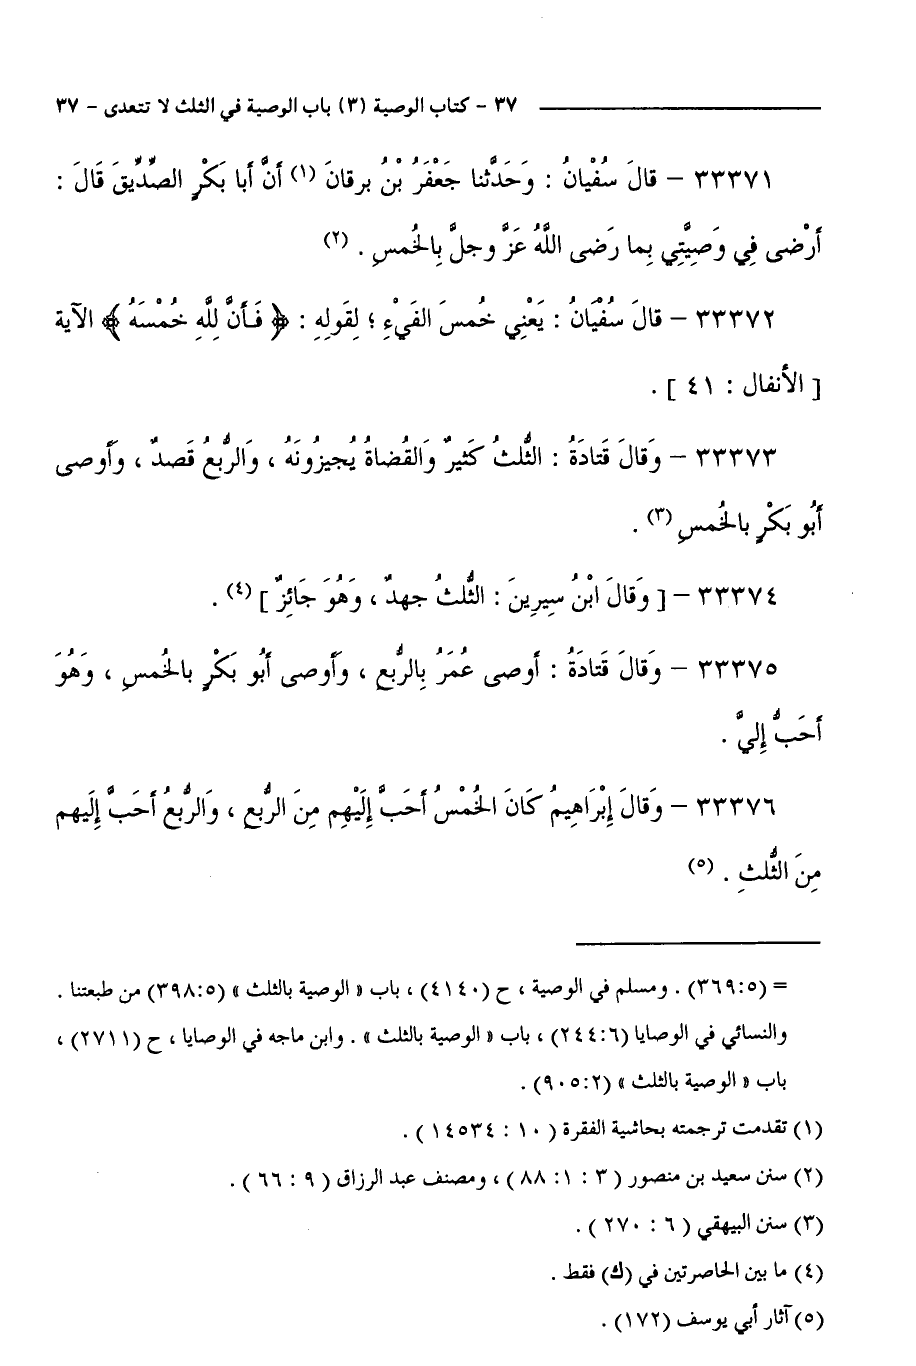 ٣٧ - كتاب الوصية (٣) باب الوصية في الثلث لا تتعدى - ٣٧
٣٣٣٧١ – قالَ سُفْيانُ : وَحَدَّثنا جَعْفَرُ بْنُ برقانَ (١) أنَّ أبا بَكْرٍ الصِّدِّيقَ قَالَ :
أَرْضى فِي وَصِيَّتِي بِما رَضى اللَّهُ عَزَّ وجلَّ بِالخُمسِ . (٢)
٣٣٣٧٢ – قالَ سُفْيَانُ : يَعْنِي خُمسَ الفَيْءِ ؛ لِقَولِهِ : ﴿ فَأَنَّ لِلَّهِ خُمْسَهُ ﴾ الآية
[ الأنفال : ٤١ ] .
٣٣٣٧٣ – وَقالَ قَتادَةُ : الثُّلثُ كَثيرٌ وَالقُضاةُ يُجيزُونَهُ ، وَالرُّبعُ قَصدٌ ، وأَوصى
أَبُو بَكْرٍ بالخُمسِ (٣) .
٣٣٣٧٤ – [ وَقالَ ابْنُ سِيرِينَ : الثُّلثُ جهدٌ ، وَهُوَ جَائِزٌ ] (٤) .
٣٣٣٧٥ – وَقالَ قَتادَةُ : أوصى عُمَرُ بِالرُّبعِ ، وَأَوصى أَبُو بَكْرٍ بالخُمسِ ، وَهُوَ
أَحَبُّ إِليَّ .
٣٣٣٧٦ – وَقالَ إِبْرَاهِيمُ كَانَ الخُمْسُ أَحَبَّ إِلَيْهِم مِنَ الرُّبعِ ، وَالرُّبعُ أَحَبَّ إِلَيهِم
مِنَ الثُّلثِ . (٥)
= (٣٦٩:٥) . ومسلم في الوصية ، ح (٤١٤٠) ، باب « الوصية بالثلث » (٣٩٨:٥) من طبعتنا .
والنسائي في الوصايا (٢٤٤:٦) ، باب « الوصية بالثلث » . وابن ماجه في الوصايا ، ح (٢٧١١) ،
باب « الوصية بالثلث » (٩٠٥:٢) .
(١) تقدمت ترجمته بحاشية الفقرة ( ١٠ : ١٤٥٣٤ ) .
(٢) سنن سعيد بن منصور ( ٣ : ١: ٨٨ ) ، ومصنف عبد الرزاق ( ٩ : ٦٦ ) .
(٣) سنن البيهقي ( ٦ : ٢٧٠ ) .
(٤) ما بين الحاصرتين في (ك) فقط .
(٥) آثار أبي يوسف (١٧٢) .